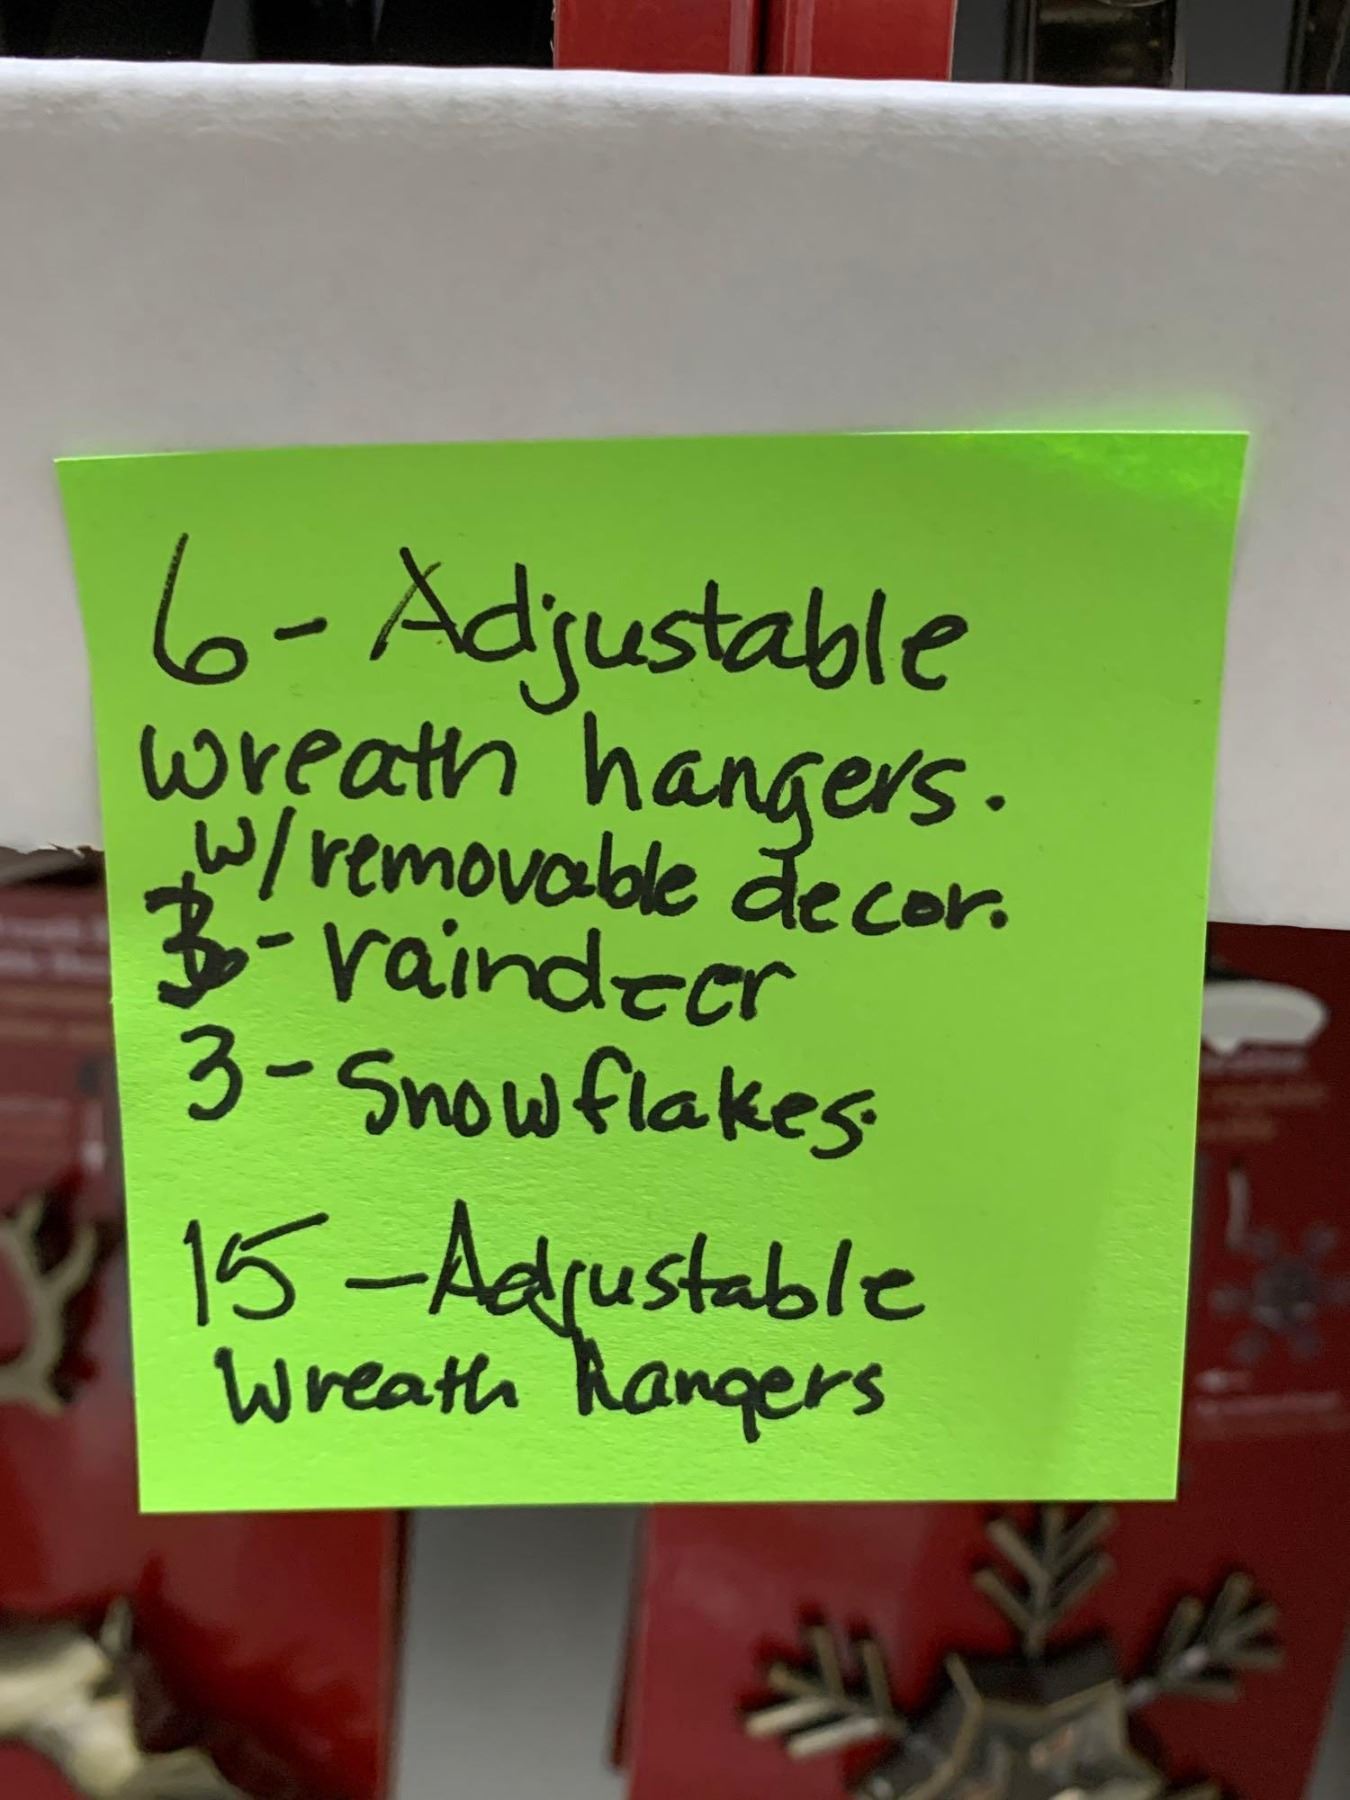 6 - Adjustable
wreath hangers.
w/removable decor.
3 - raindeer
3 - Snowflakes.
15 - Adjustable
Wreath hangers